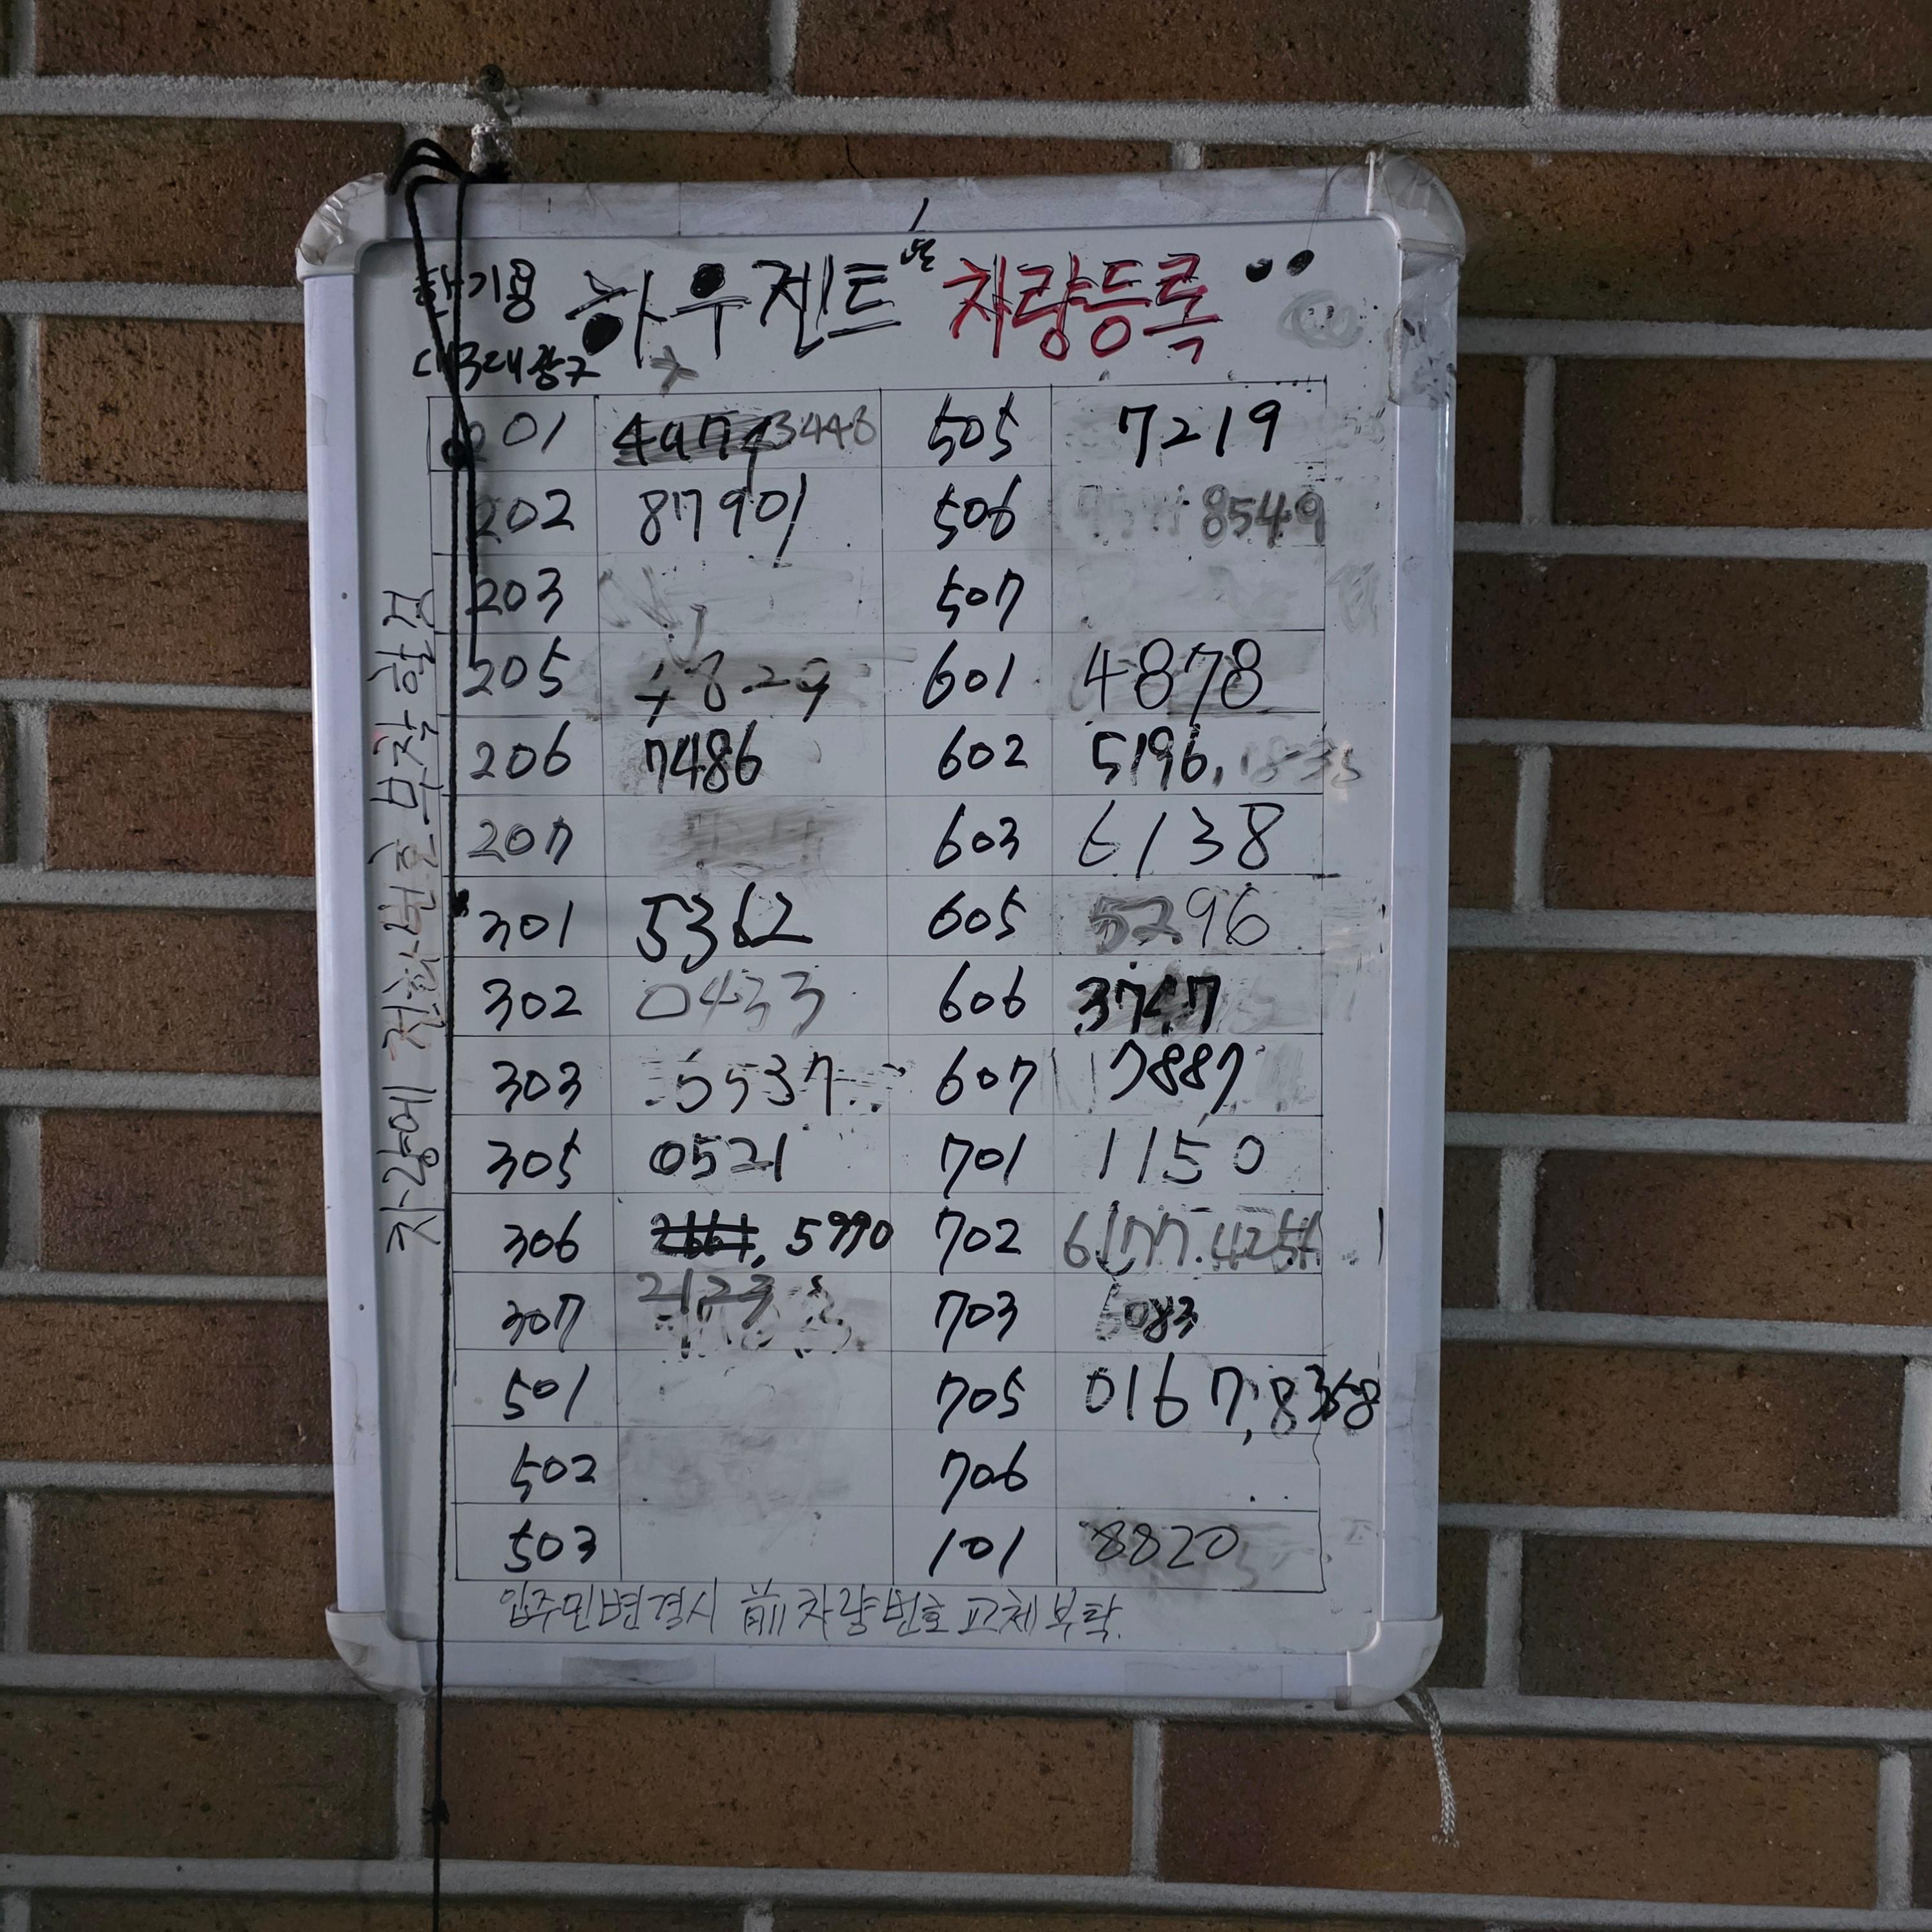 하우젠트 차량등록
201 3448 505 7219
202 8790 506 8549
203 507
205 4829 601 4878
206 7486 602 5196,
207 603 6138
301 5362 605 5296
302 0433 606 3747
303 5537 607 7887
305 0521 701 1150
306 5990 702 6177.
307 2123 703 6083
501 705 0167,8368
502 706
503 101 8820
입주민변경시 前차량번호교체부탁.
차량에 전화번호 부착할 것